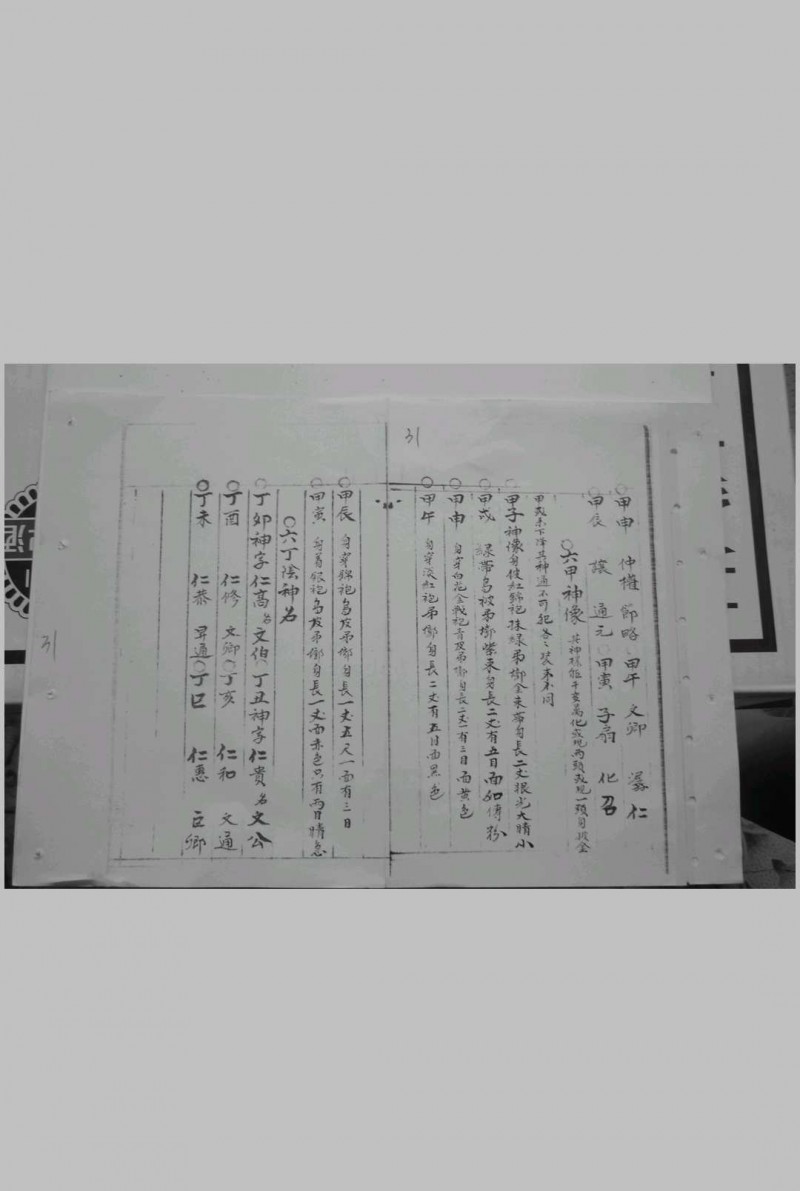 31
○甲申 仲權 節略○甲午 文卿 潺仁
○甲辰 讓 通元○甲寅 子扇 化召
○六甲神像 其神樣能千变萬化或現两頭或現一頭身披金
甲或 下降其神通不可犯各之装束不同
○甲子神像身披紅錦袍抹緑吊 金束帶身長二丈眼光大睛小
○甲戍 緑帶烏被吊 紫束身長二丈有五目面如傅粉
○甲申 身穿白花金戦袍青皮吊 身長二丈一有三目面黄色
○甲午 身穿淡紅袍吊 身長二丈有五目面黑色
○甲辰 身穿錦袍烏皮吊 身長一丈五尺一面有三目
○甲寅 身着銀袍烏皮吊 身長一丈面赤色只有两目睛急
○六丁陰神名
○丁卯神字仁高名文伯○丁丑神字仁貴名文公
○丁酉 仁修 文卿○丁亥 仁和 文通
○丁未 仁恭 昇通○丁巳 仁惠 巨卿
31